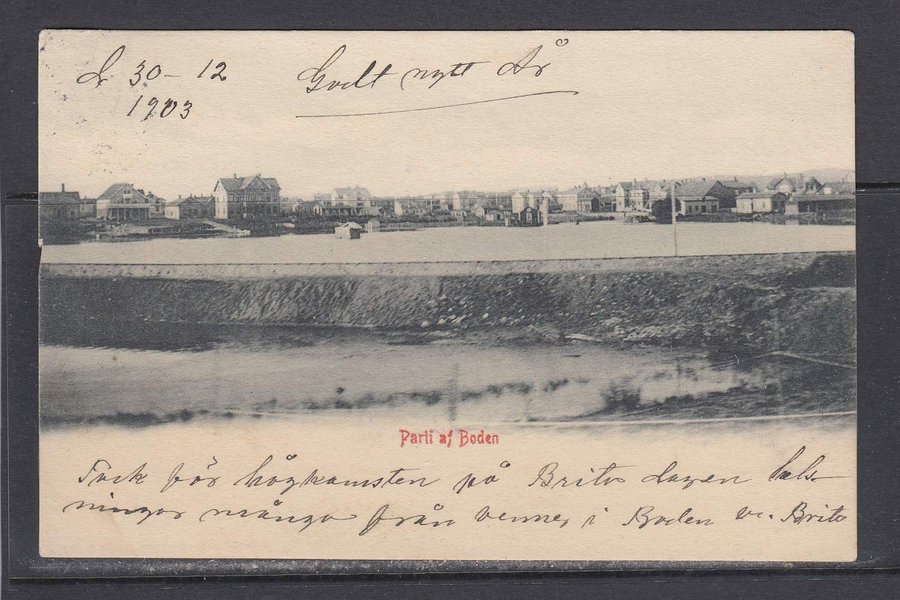 d 30-12
1903
Godt nytt År
Parti af Boden
Tack för hågkomsten på Brita dagen häls-
ningar många från venner i Boden
Brita